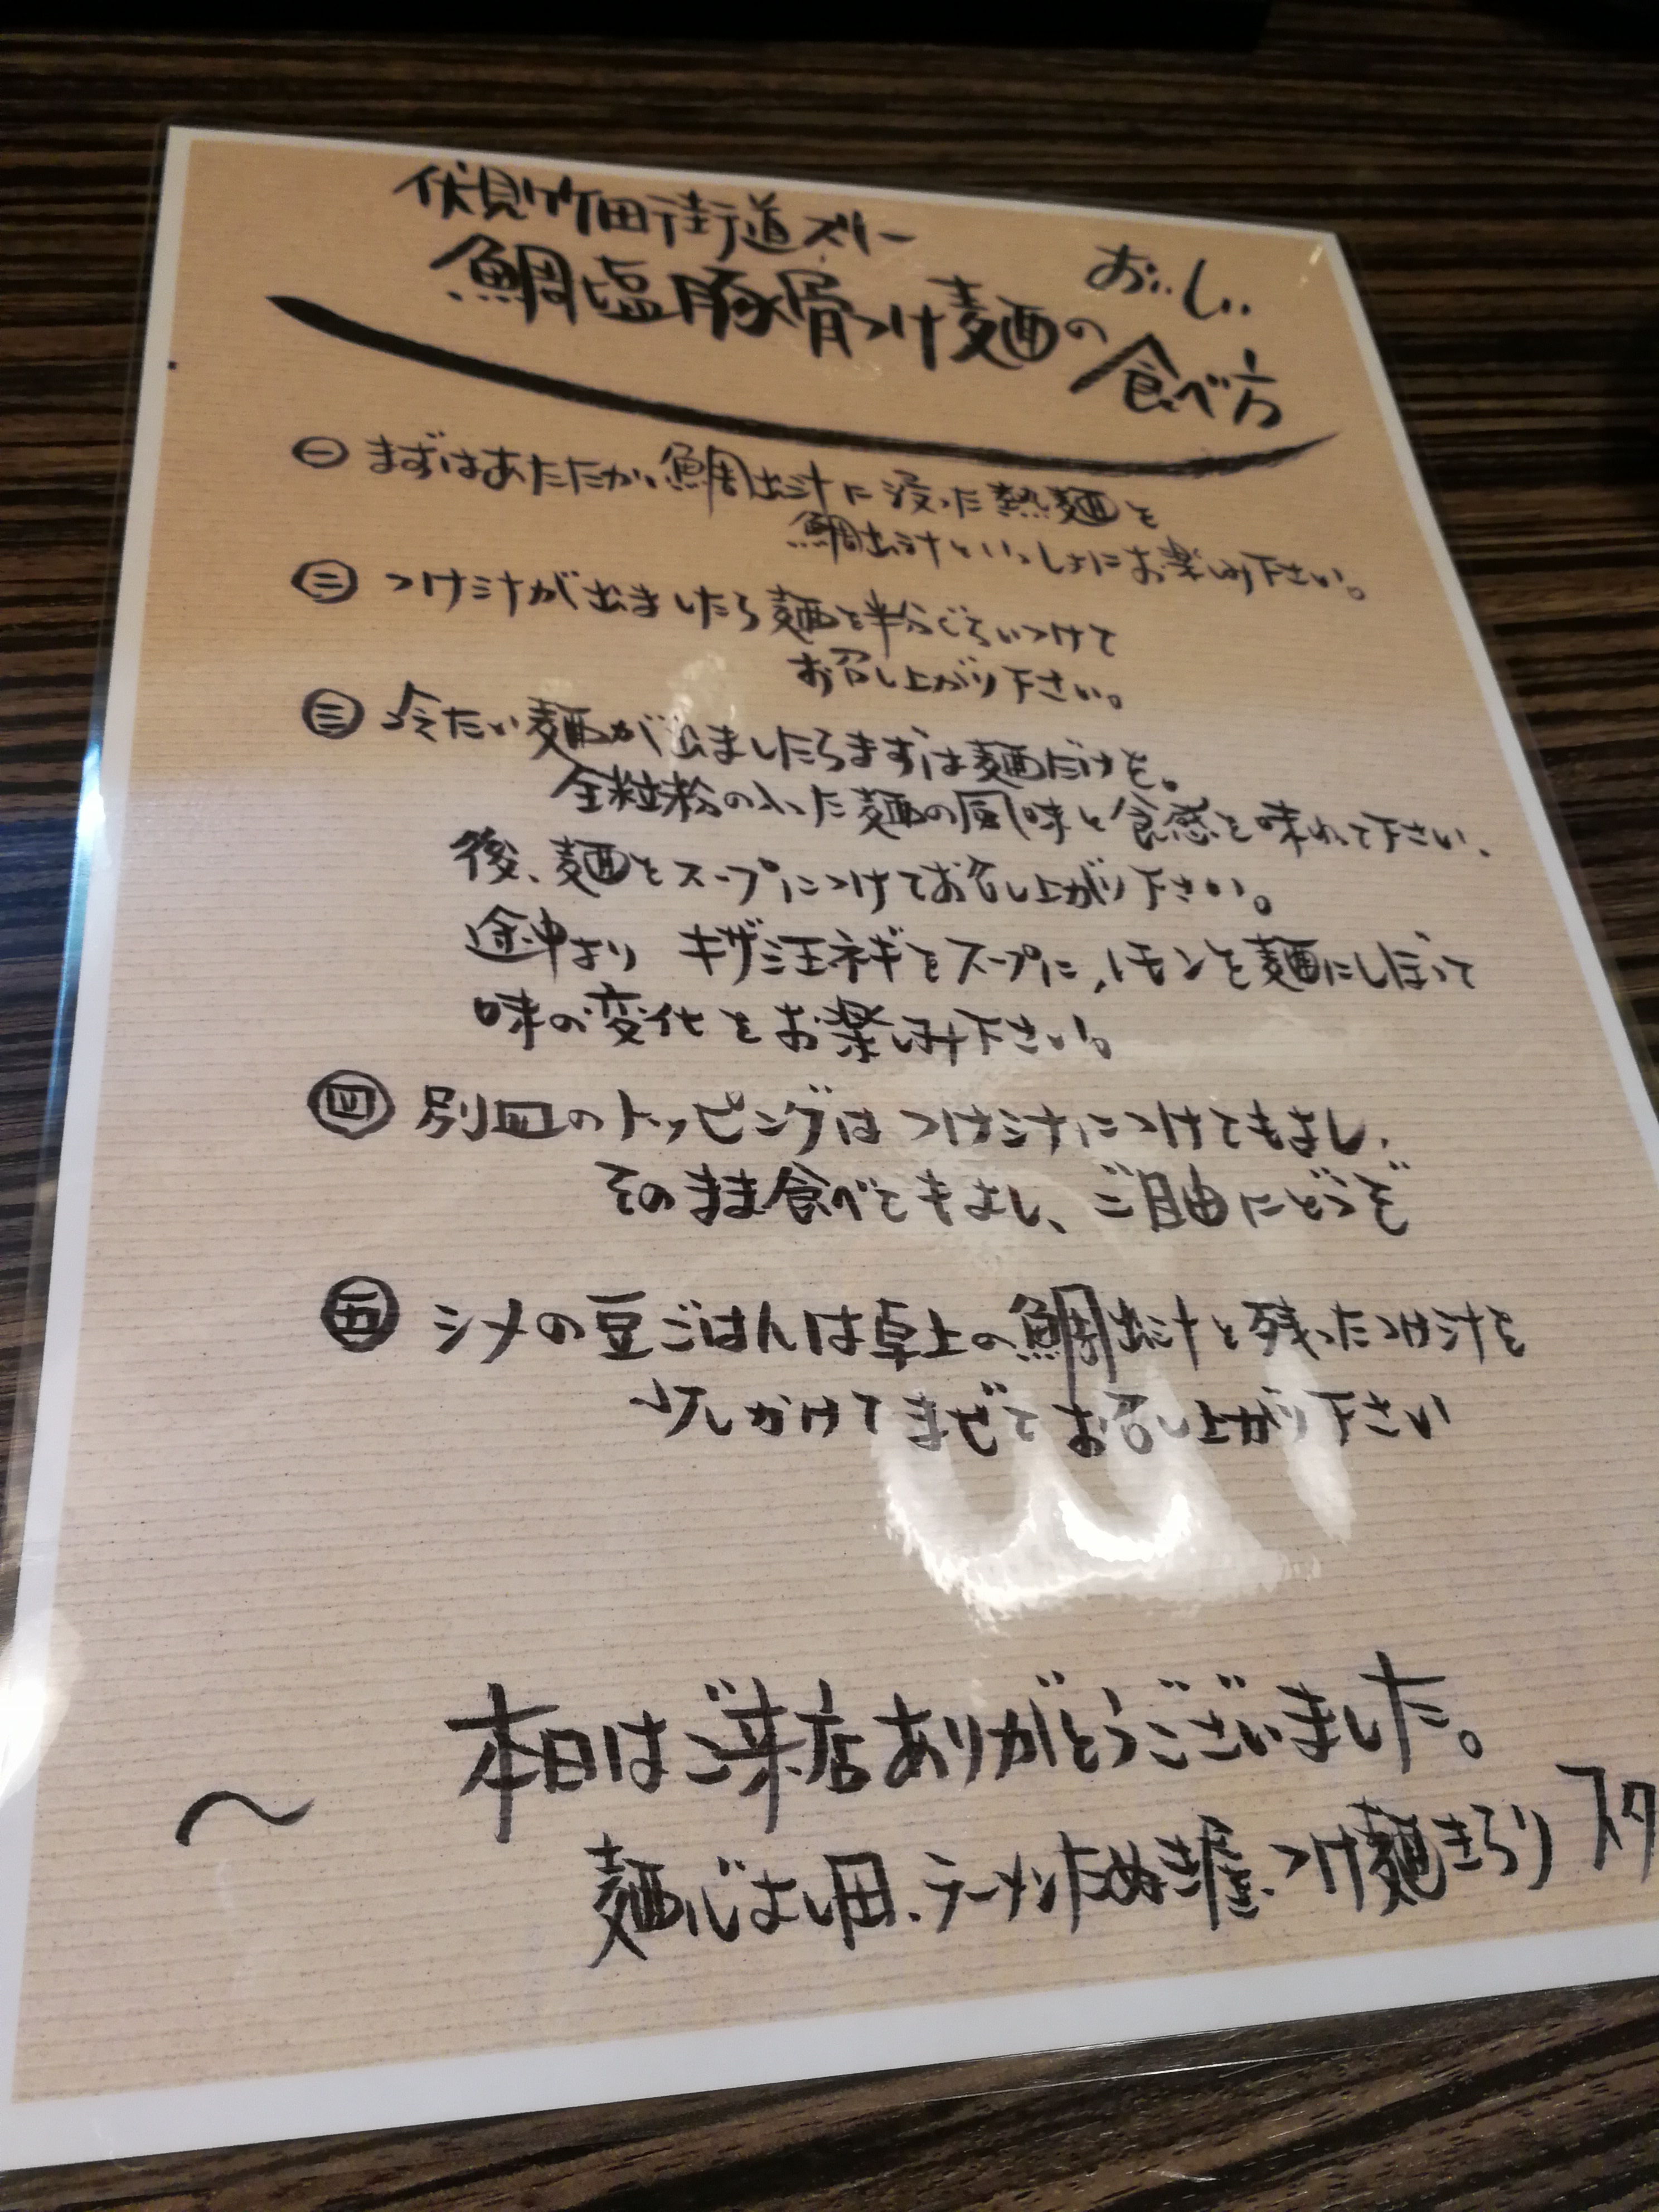 伏見竹田街道ズリー
鯛塩豚骨つけ麺の
おいしい
食べ方
㊀ まずはあたたかい鯛出汁に浸った熱麺を
鯛出汁といっしょにお楽しみ下さい。
㊁ つけ汁が出ましたら麺を半分ぐらいつけて
お召し上がり下さい。
㊂ 冷たい麺が出ましたらまずは麺だけを。
全粒粉の入った麺の風味と食感を味わって下さい、
後、麺をスープにつけてお召し上がり下さい。
途中より キザミ玉ネギをスープに、レモンを麺にしぼって
味の変化をお楽しみ下さい。
㊃ 別皿のトッピングは つけ汁につけてもよし、
そのまま食べてもよし、ご自由にどうぞ
㊄ シメの豆ごはんは卓上の鯛出汁と残ったつけ汁を
少しかけてまぜてお召し上がり下さい
本日はご来店ありがとうございました。
〜 麺心よし田、ラーメンたぬき屋、つけ麺きらり スタ